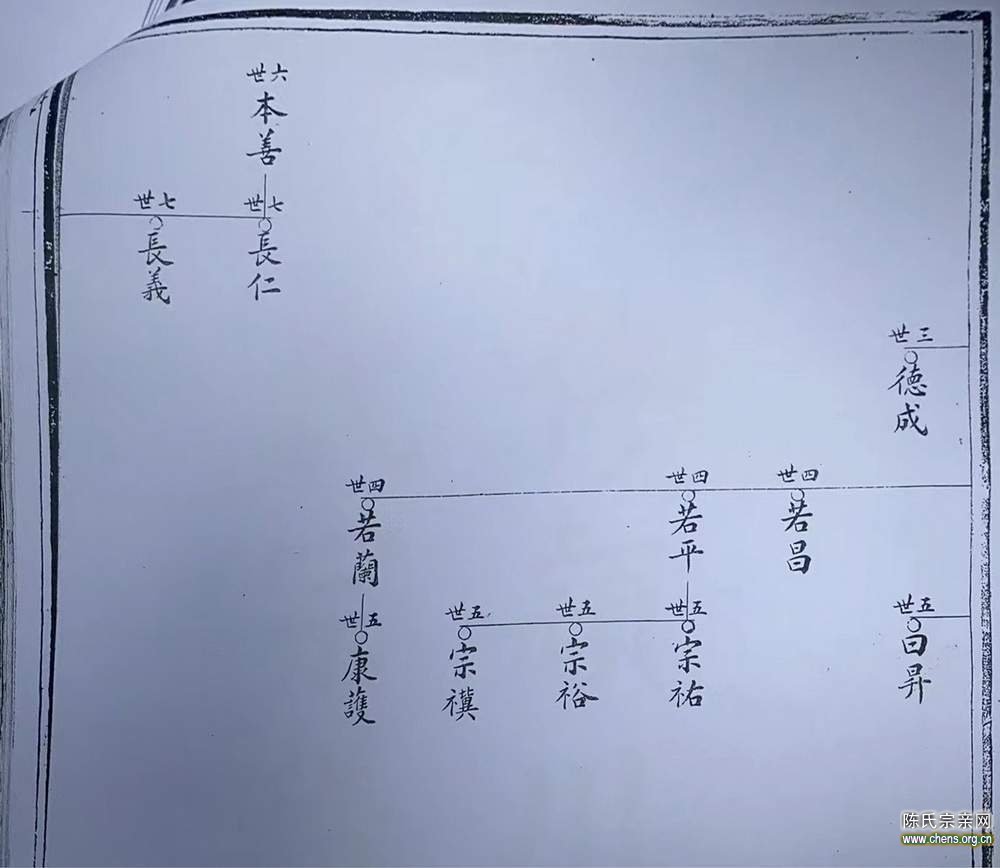 六世
本善
七世
長仁
七世
長義
三世
德成
四世
若昌
四世
若平
四世
若蘭
五世
曰昇
五世
宗祐
五世
宗裕
五世
宗禩
五世
康護
陈氏宗亲网
www.chens.org.cn